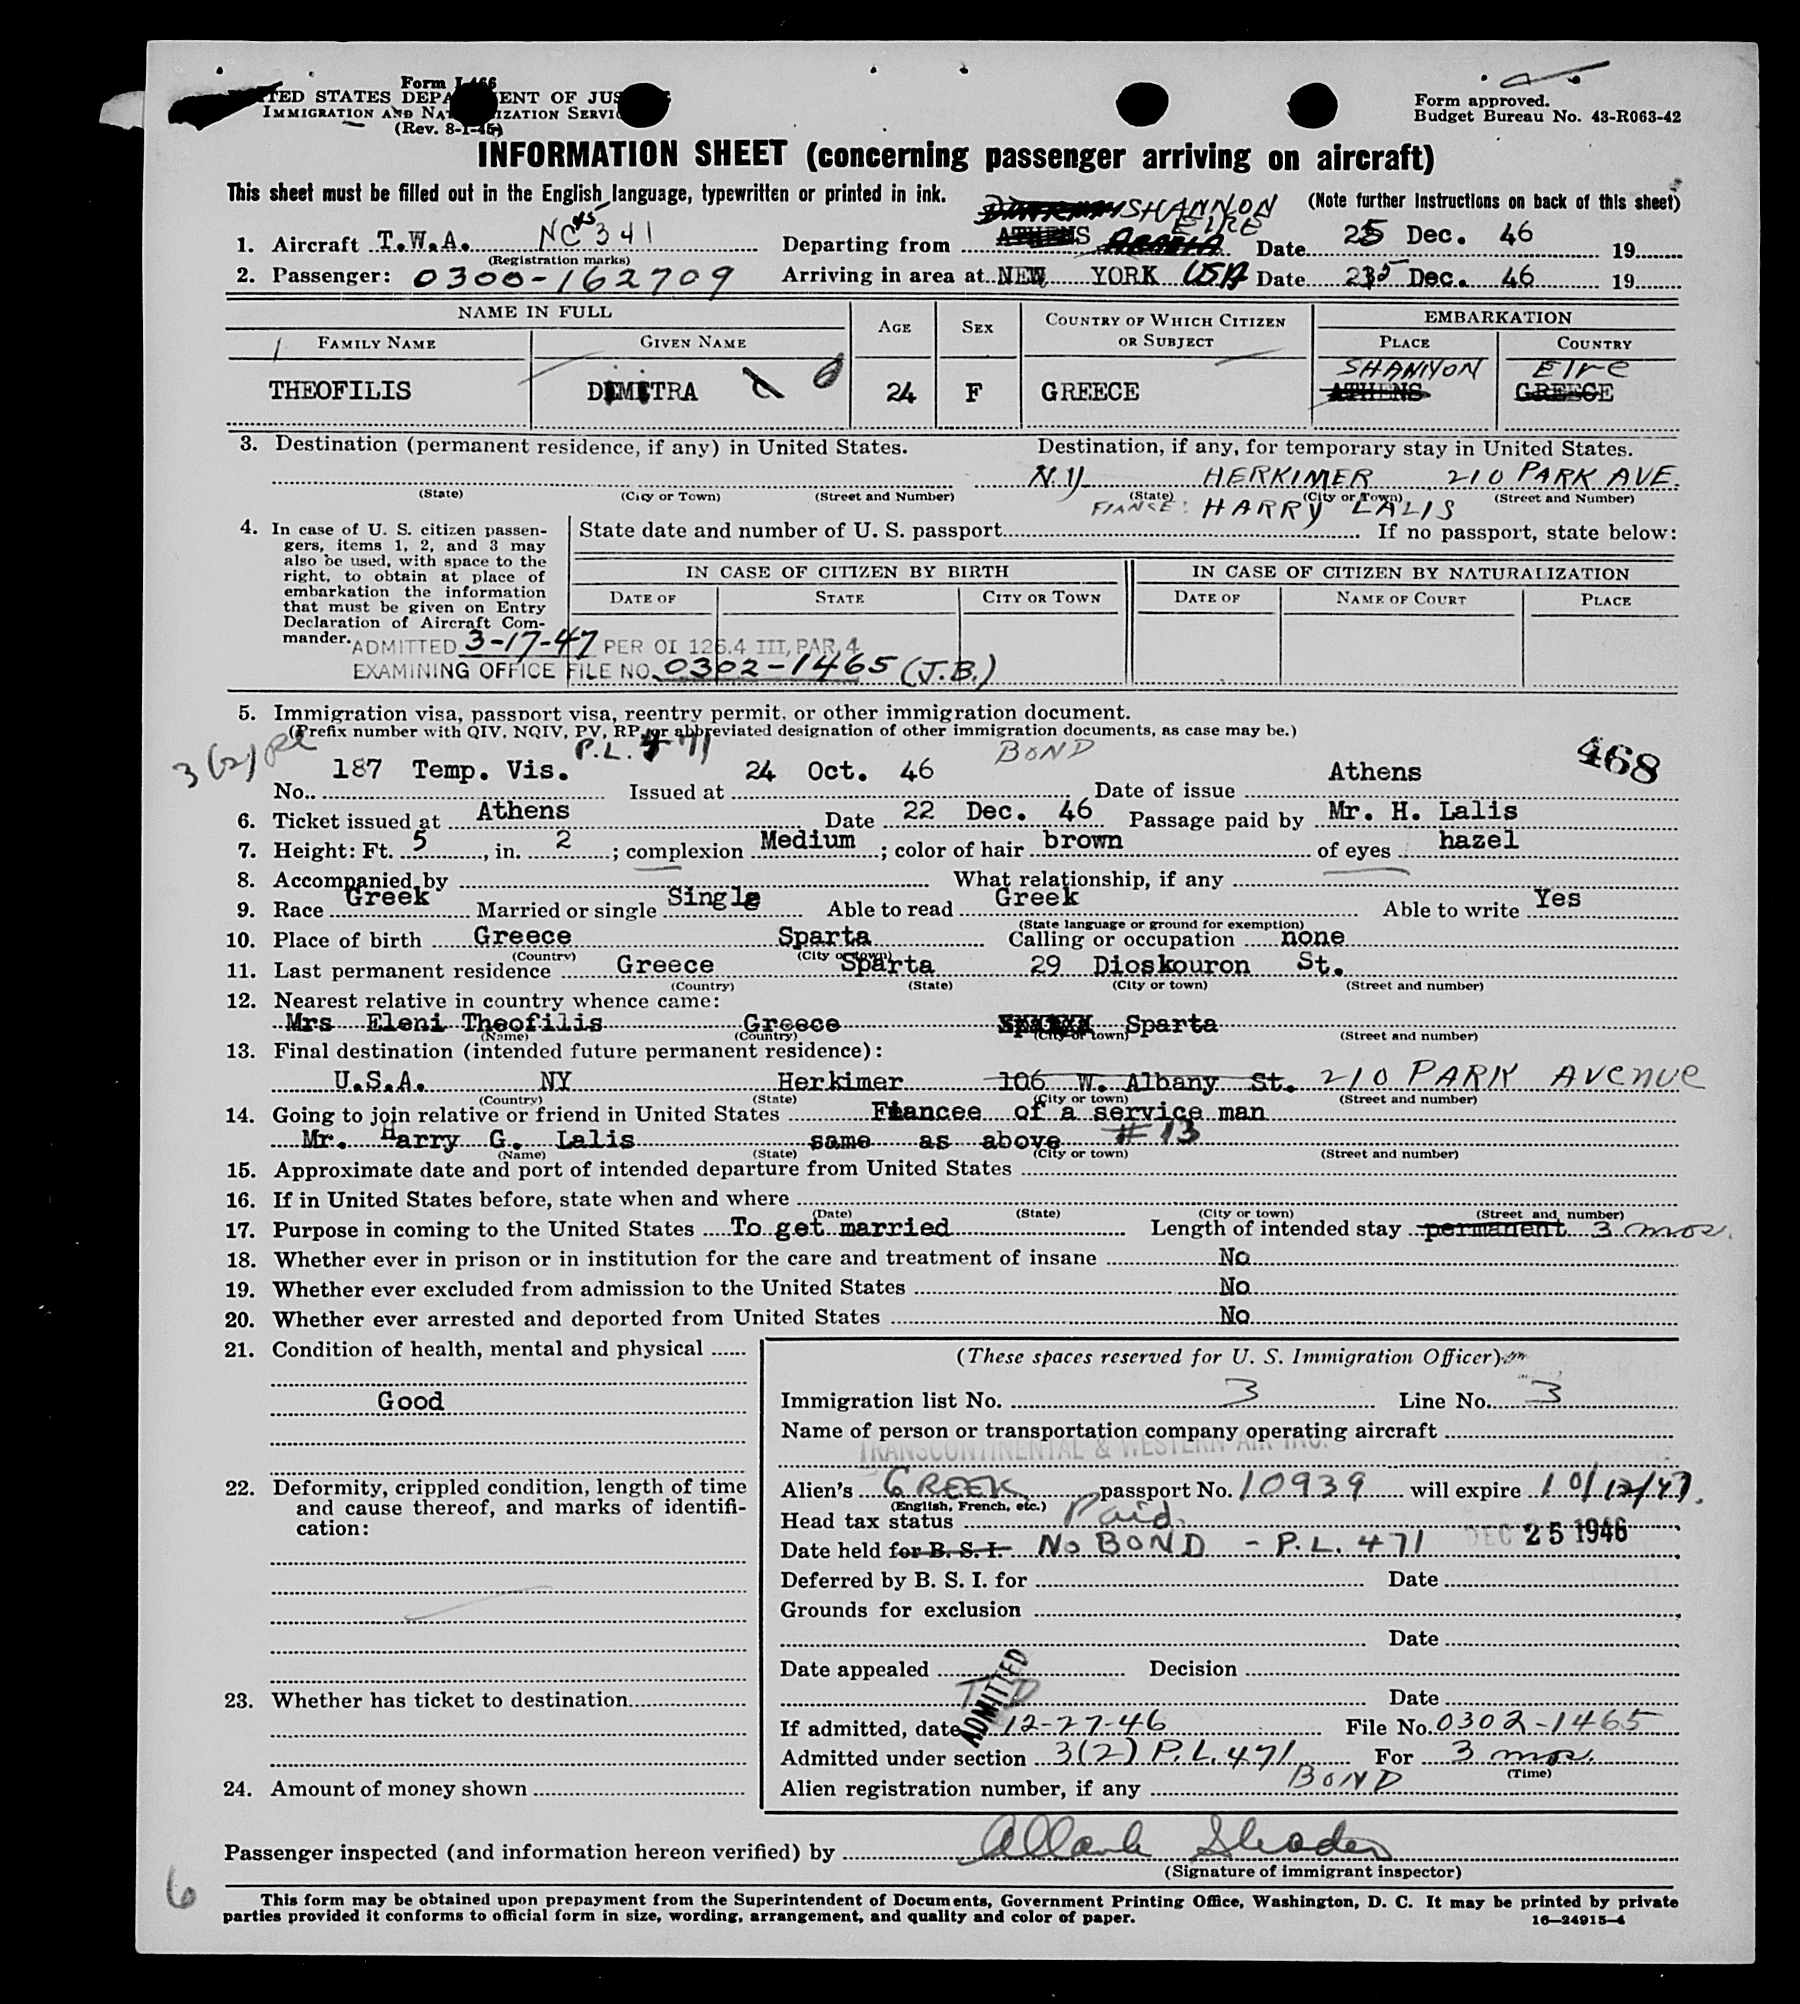 Form I-466
UNITED STATES DEPARTMENT OF JUSTICE
IMMIGRATION AND NATURALIZATION SERVICE
(Rev. 8-1-45)
Form approved.
Budget Bureau No. 43-R063-42
INFORMATION SHEET (concerning passenger arriving on aircraft)
This sheet must be filled out in the English language, typewritten or printed in ink.
(Note further instructions on back of this sheet)
SHANNON
EIRE
1. Aircraft T.W.A. NC 45341 Departing from ATHENS Date 25 Dec. 46 19
(Registration marks)
2. Passenger: 0300-162709 Arriving in area at NEW YORK USA Date 25 Dec. 46 19
NAME IN FULL AGE SEX COUNTRY OF WHICH CITIZEN OR SUBJECT EMBARKATION
FAMILY NAME GIVEN NAME PLACE COUNTRY
SHANNON EIre
THEOFILIS DIMITRA 24 F GREECE ATHENS GREECE
3. Destination (permanent residence, if any) in United States. Destination, if any, for temporary stay in United States.
N.Y. HERKIMER 210 PARK AVE.
(State) (City or Town) (Street and Number) (State) (City or Town) (Street and Number)
FIANCE: HARRY LALIS
4. In case of U. S. citizen passen-
gers, items 1, 2, and 3 may
also be used, with space to the
right, to obtain at place of
embarkation the information
that must be given on Entry
Declaration of Aircraft Com-
mander.
State date and number of U. S. passport If no passport, state below:
IN CASE OF CITIZEN BY BIRTH IN CASE OF CITIZEN BY NATURALIZATION
DATE OF STATE CITY OR TOWN DATE OF NAME OF COURT PLACE
ADMITTED 3-17-47 PER OI 126.4 III, PAR. 4
EXAMINING OFFICE FILE NO. 0302-1465 (J.B.)
5. Immigration visa, passport visa, reentry permit, or other immigration document.
(Prefix number with QIV, NQIV, PV, RP, or abbreviated designation of other immigration documents, as case may be.)
3(2) P.L. 471 BOND 468
187 Temp. Vis. 24 Oct. 46 Athens
No. Issued at Date of issue
6. Ticket issued at Athens Date 22 Dec. 46 Passage paid by Mr. H. Lalis
7. Height: Ft. 5, in. 2; complexion Medium; color of hair brown of eyes hazel
8. Accompanied by What relationship, if any
9. Race Greek Married or single Single Able to read Greek Able to write Yes
(State language or ground for exemption)
10. Place of birth Greece Sparta Calling or occupation none
(Country) (City or town)
11. Last permanent residence Greece Sparta 29 Dioskouron St.
(Country) (State) (City or town) (Street and number)
12. Nearest relative in country whence came:
Mrs Eleni Theofilis Greece Sparta
(Name) (Country) (City or town) (Street and number)
13. Final destination (intended future permanent residence):
U.S.A. NY Herkimer 106 W. Albany St. 210 PARK AVenue
(Country) (State) (City or town) (Street and number)
14. Going to join relative or friend in United States Fiancee of a service man
Mr. Harry G. Lalis same as above #13
(Name) (State) (City or town) (Street and number)
15. Approximate date and port of intended departure from United States
16. If in United States before, state when and where
(Date) (State) (City or town) (Street and number)
17. Purpose in coming to the United States To get married Length of intended stay permanent 3 mos.
18. Whether ever in prison or in institution for the care and treatment of insane No
19. Whether ever excluded from admission to the United States No
20. Whether ever arrested and deported from United States No
21. Condition of health, mental and physical
Good
22. Deformity, crippled condition, length of time
and cause thereof, and marks of identifi-
cation:
23. Whether has ticket to destination
24. Amount of money shown
(These spaces reserved for U. S. Immigration Officer)
Immigration list No. 3 Line No. 3
Name of person or transportation company operating aircraft
TRANSCONTINENTAL & WESTERN AIR INC.
Alien's GREEK passport No. 10939 will expire 10/12/47.
(English, French, etc.)
Head tax status Paid.
DEC 25 1946
Date held for B. S. I. No BOND - P.L. 471
Deferred by B. S. I. for Date
Grounds for exclusion
Date
Date appealed Decision
Date
ADMITTED
If admitted, date 12-27-46 File No. 0302-1465
Admitted under section 3(2) P.L. 471 For 3 mos.
(Time)
Alien registration number, if any BOND
Passenger inspected (and information hereon verified) by
(Signature of immigrant inspector)
6
This form may be obtained upon prepayment from the Superintendent of Documents, Government Printing Office, Washington, D. C. It may be printed by private
parties provided it conforms to official form in size, wording, arrangement, and quality and color of paper.
16—24915-4